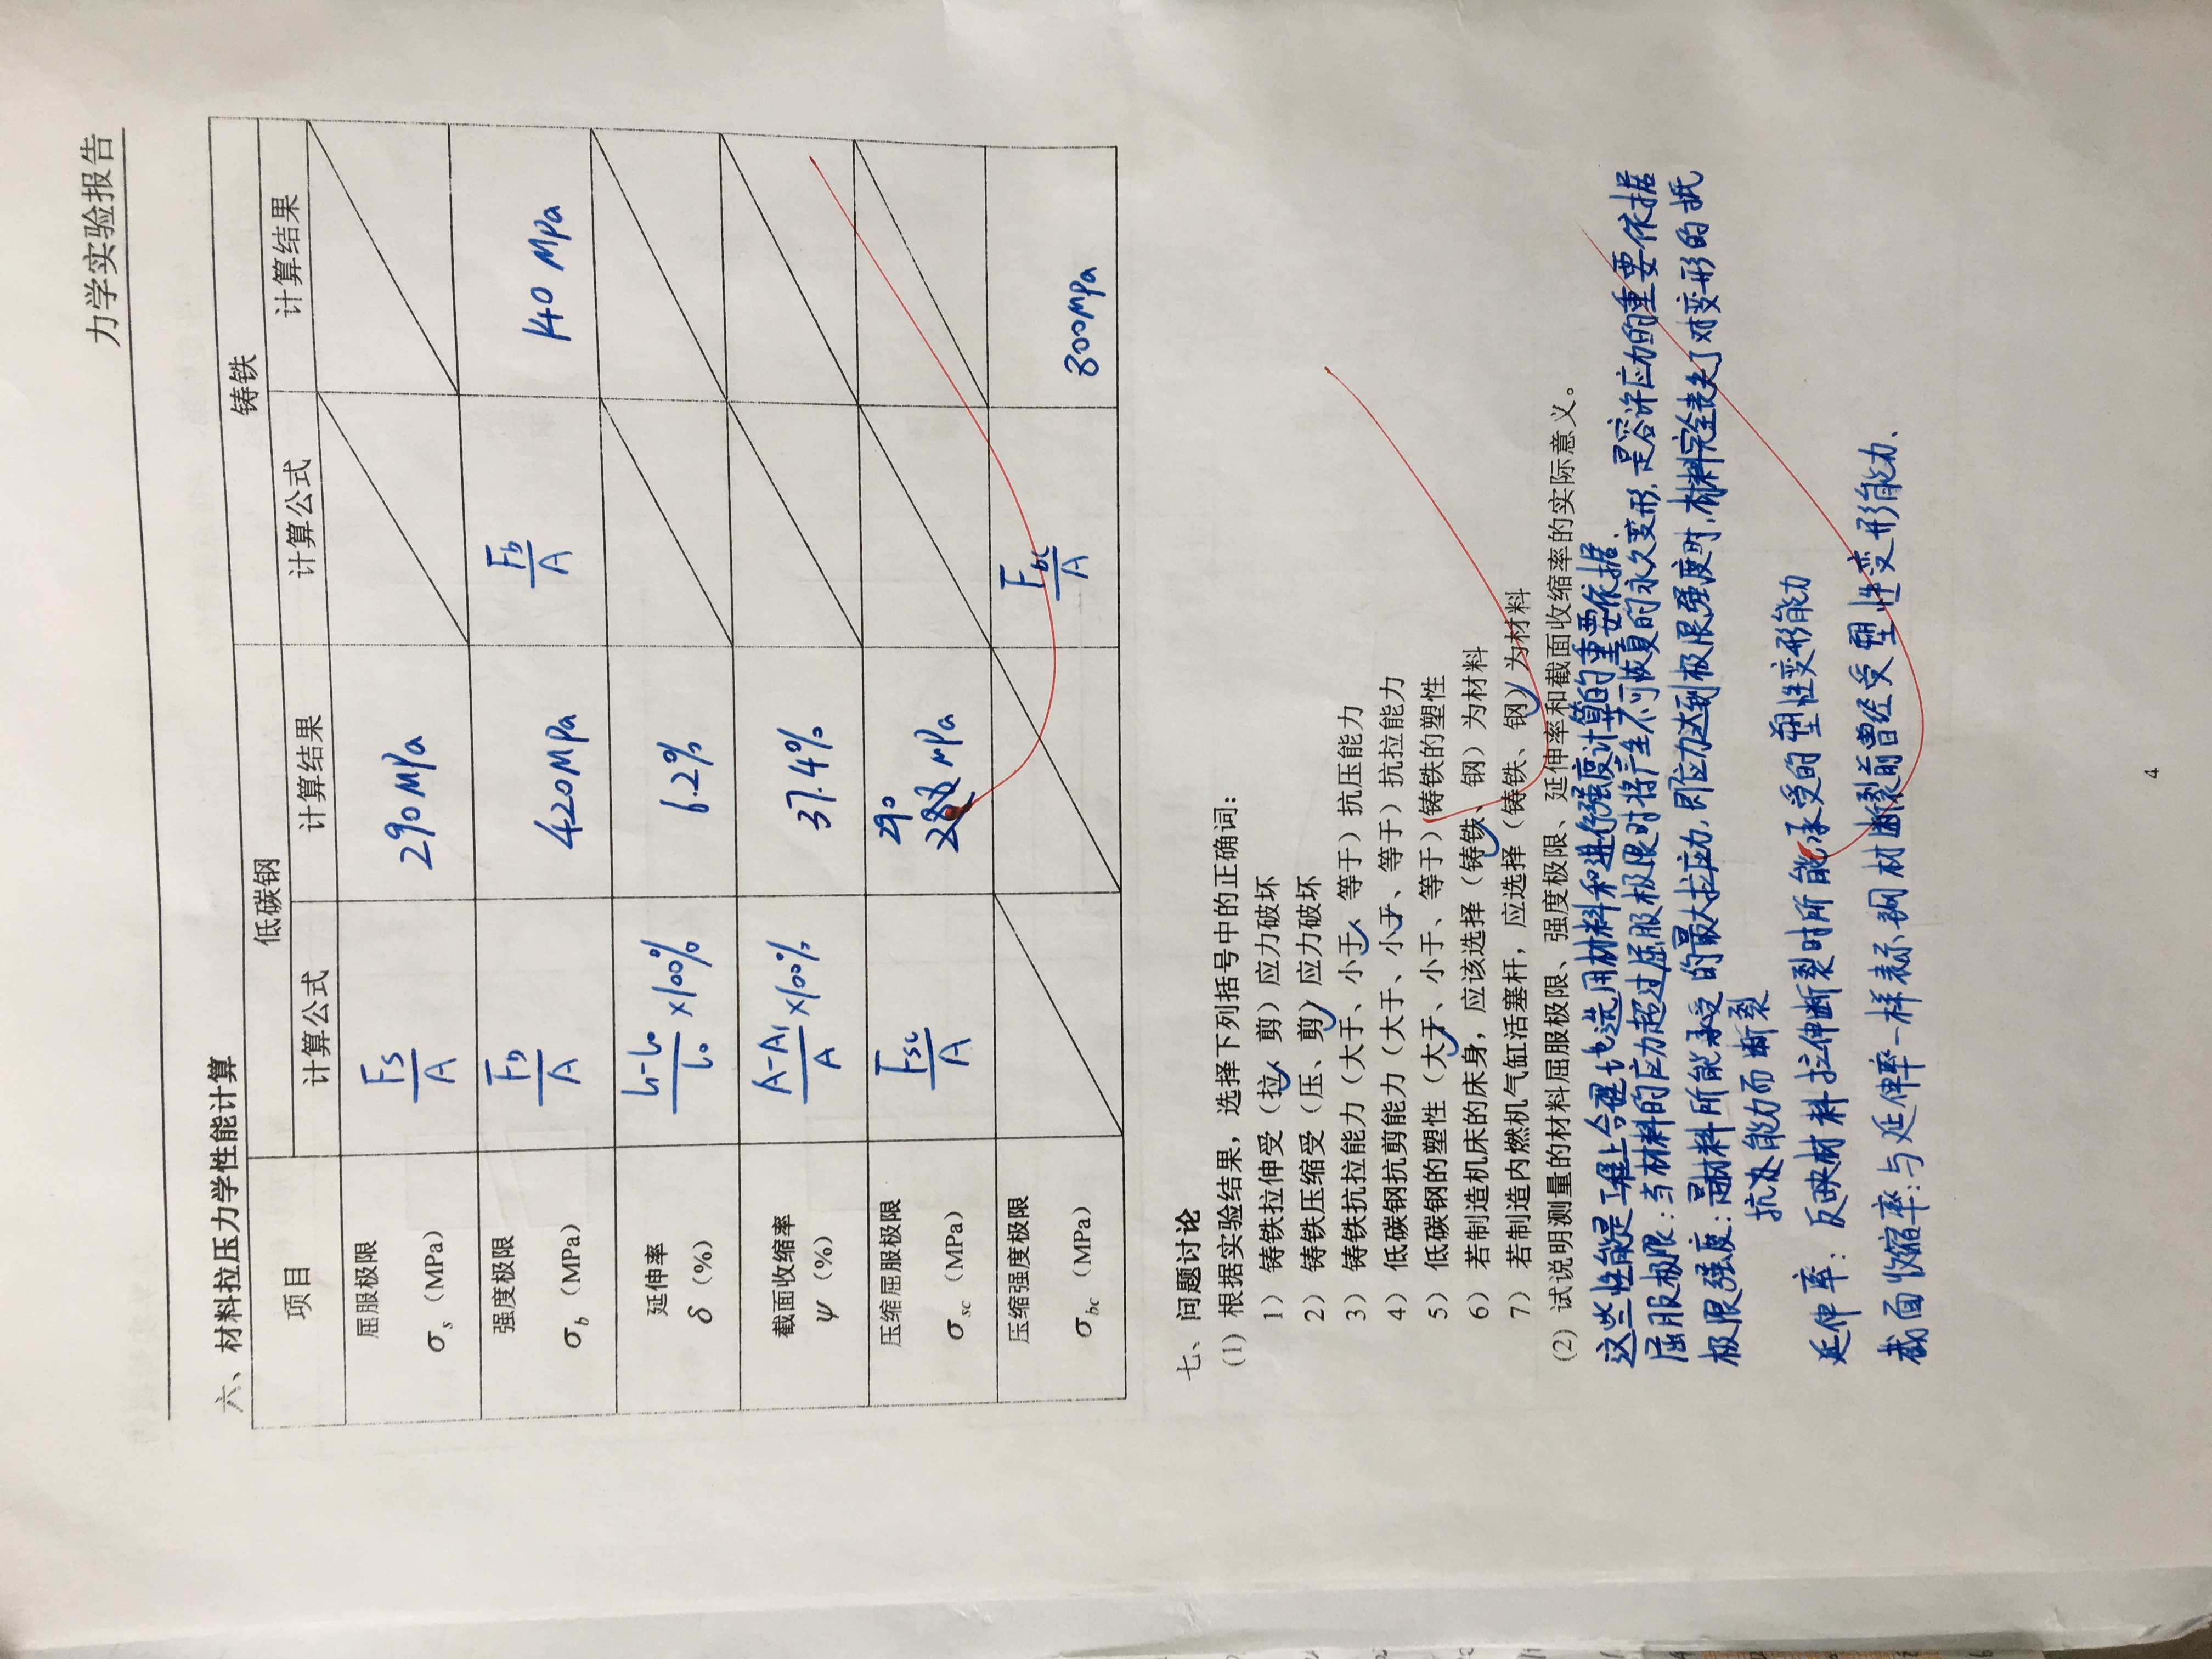 力学实验报告
六、材料拉压力学性能计算
项目 低碳钢 铸铁
计算公式 计算结果 计算公式 计算结果
屈服极限 σs（MPa） Fs/A 290 MPa
强度极限 σb（MPa） Fb/A 420MPa Fb/A 140 MPa
延伸率 δ（%） (l₁-l₀)/l₀ ×100% 6.2%
截面收缩率 ψ（%） (A-A₁)/A ×100% 37.4%
压缩屈服极限 σsc（MPa） Fsc/A 290 MPa
压缩强度极限 σbc（MPa） Fbc/A 800MPa
七、问题讨论
（1）根据实验结果，选择下列括号中的正确词：
1）铸铁拉伸受（拉、剪）应力破坏
2）铸铁压缩受（压、剪）应力破坏
3）铸铁抗拉能力（大于、小于、等于）抗压能力
4）低碳钢抗剪能力（大于、小于、等于）抗拉能力
5）低碳钢的塑性（大于、小于、等于）铸铁的塑性
6）若制造机床的床身，应该选择（铸铁、钢）为材料
7）若制造内燃机气缸活塞杆，应选择（铸铁、钢）为材料
（2）试说明测量的材料屈服极限、强度极限、延伸率和截面收缩率的实际意义。
这些性能是工程上合理地选用材料和进行强度计算的重要依据.
屈服极限:当材料的应力超过屈服极限时将产生不可恢复的永久变形,是容许应力的重要依据
极限强度:是材料所能承受的最大拉应力,即应力达到极限强度时,材料完全丧失了对变形的抵
抗力能力而断裂
延伸率:反映材料拉伸断裂时所能承受的塑性变形能力
截面收缩率:与延伸率一样表示钢材断裂前曾经受塑性变形能力、
4